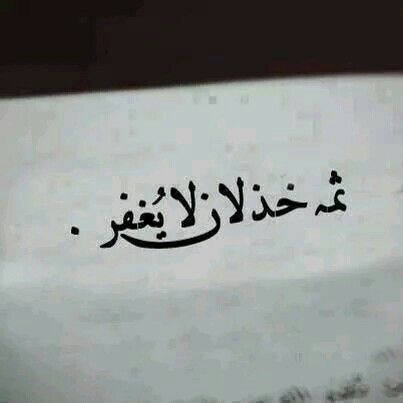 ثمہ خذلان لا يُغفر .